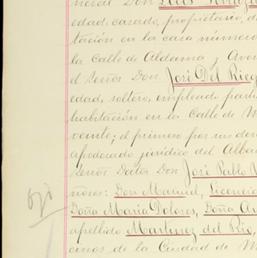 neral Don Luis
edad, casado, propietario,
tación en la casa número
la Calle de Aldama,
el Señor Don José Del
edad, soltero, empleado
habitación en la Calle de
veinte; el primero por su
apoderado jurídico del
Señor Doctor Don José Pablo
ñores: Don Manuel,
Doña María Dolores, Doña
apellido Martinez del Río,
cinos de la Ciudad de